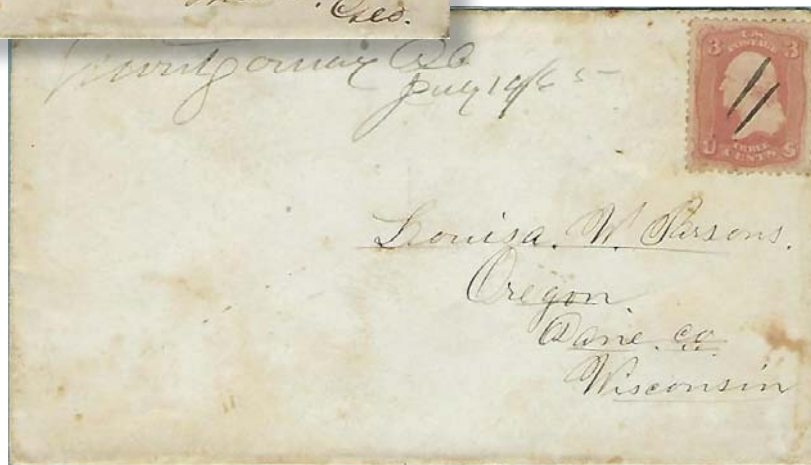 Geo.
Montgomery Ala
July 19/65
3 U.S. 3
POSTAGE
U THREE S
CENTS
Louisa. W. Parsons.
Oregon.
Dane. co.
Wisconsin